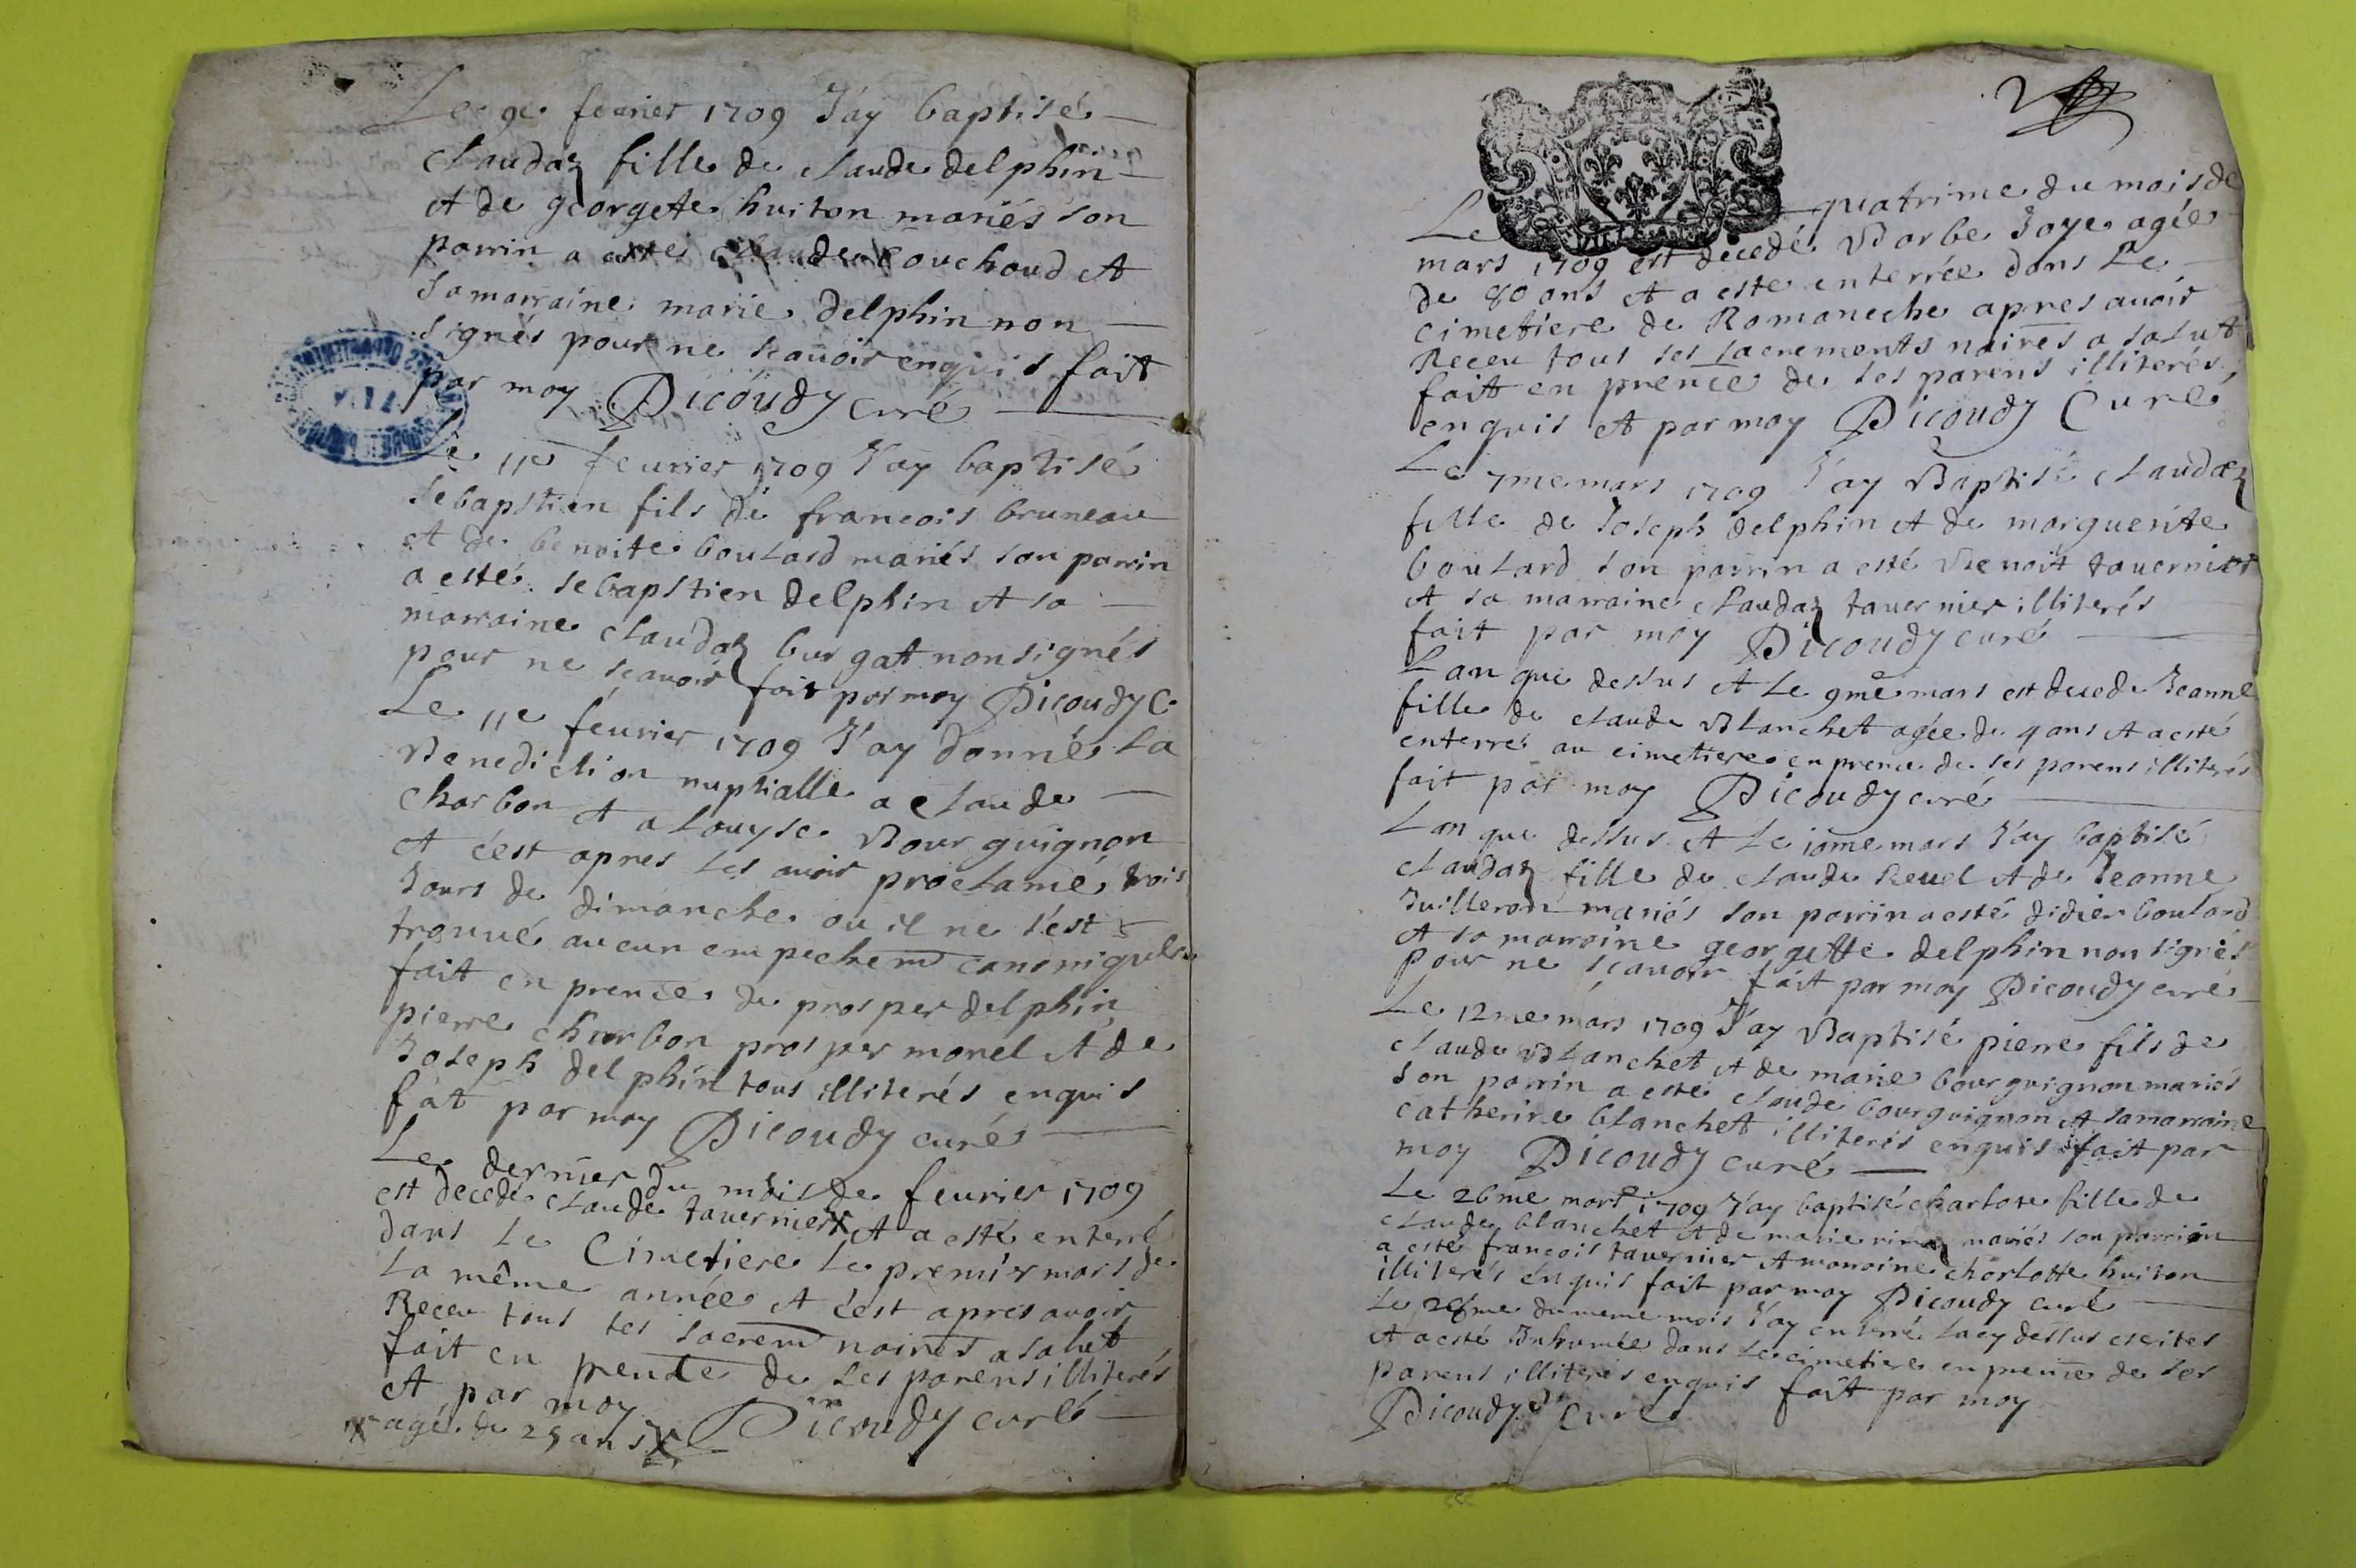 Le 9e feurier 1709 J'ay baptisé
claudaz fille de claude delphin
et de georgete huiton mariés son
parrin a esté claude couchoud et
sa marraine marie delphin non
signés pour ne scauoir enquis fait
par moy Dicoudy curé
Le 11e feurier 1709 J'ay baptisé
sebapstien fils de francois bruneau
et de benoite boulard mariés son parrin
a esté sebapstien delphin et sa
marraine claudaz burgat non signés
pour ne scauoir fait par moy Dicoudy C.
Le 11e féurier 1709 J'ay donné la
Benediction nuptialle a claude
charbon et a Louyse Bourguignon
et c'est apres les auoir proclamé trois
Jours de dimanche ou il ne s'est
trouué aucun empechem canonique
fait en prence de prosper delphin
pierre charbon prosper morel et de
Joseph delphin tous illiterés enquis
fat par moy Dicoudy curé
Le dernier du mois de feurier 1709
est decedé claude tauernier x et a esté enterré
dans le Cimetiere le premier mars de
la même année et c'est apres auoir
Receu tous ses sacrem naires a salut
fait en prence de ses parens illiterés
et par moy Dicoudy curé
x agé de 25 ans x
2
Le quatrime du mois de
mars 1709 est decedé Barbe Joye agée
de 80 ans et a este enterrée dans le
cimetiere de Romaneche apres auoir
Receu tous ses sacrements naires a salut
fait en prence de ses parens illiterés
enquis et par moy Dicoudy Curé
Le 7me mars 1709 J'ay Baptisé claudaz
fille de Joseph delphin et de marguerite
boulard son parrin a esté Benoit tauernier
et sa marraine claudaz tauernier illiterés
fait par moy Dicoudy curé
Lan que dessus et le 9me mars est decede Jeanne
fille de claude Blanchet agée de 4 ans et a esté
enterré au cimetiere en prence de ses parens illiterés
fait par moy Dicoudy curé
Lan que dessus et le 10me mars J'ay baptisé
claudaz fille de claude Reuel et de Jeanne
Juilleron mariés son parrin a esté didier boulard
et sa marraine georgette delphin non signés
pour ne scauoir fait par moy Dicoudy curé
Le 12me mars 1709 J'ay Baptisé pierre fils de
claude Blanchet et de marie bourguignon mariés
son parrin a esté claude bourguignon et sa marraine
catherine blanchet illiterés enquis fait par
moy Dicoudy curé
Le 26me mars 1709 J'ay baptisé charlote fille de
claude blanchet et de marie mariés son parrin
a esté francois tauernier et marraine charlotte huiton
illiterés enquis fait par moy Dicoudy curé
Le du meme mois J'ay enterré la cy dessus escrites
et a esté Inhumée dans le cimetiere en prence de ses
parens illiterés enquis fait par moy
Dicoudy curé